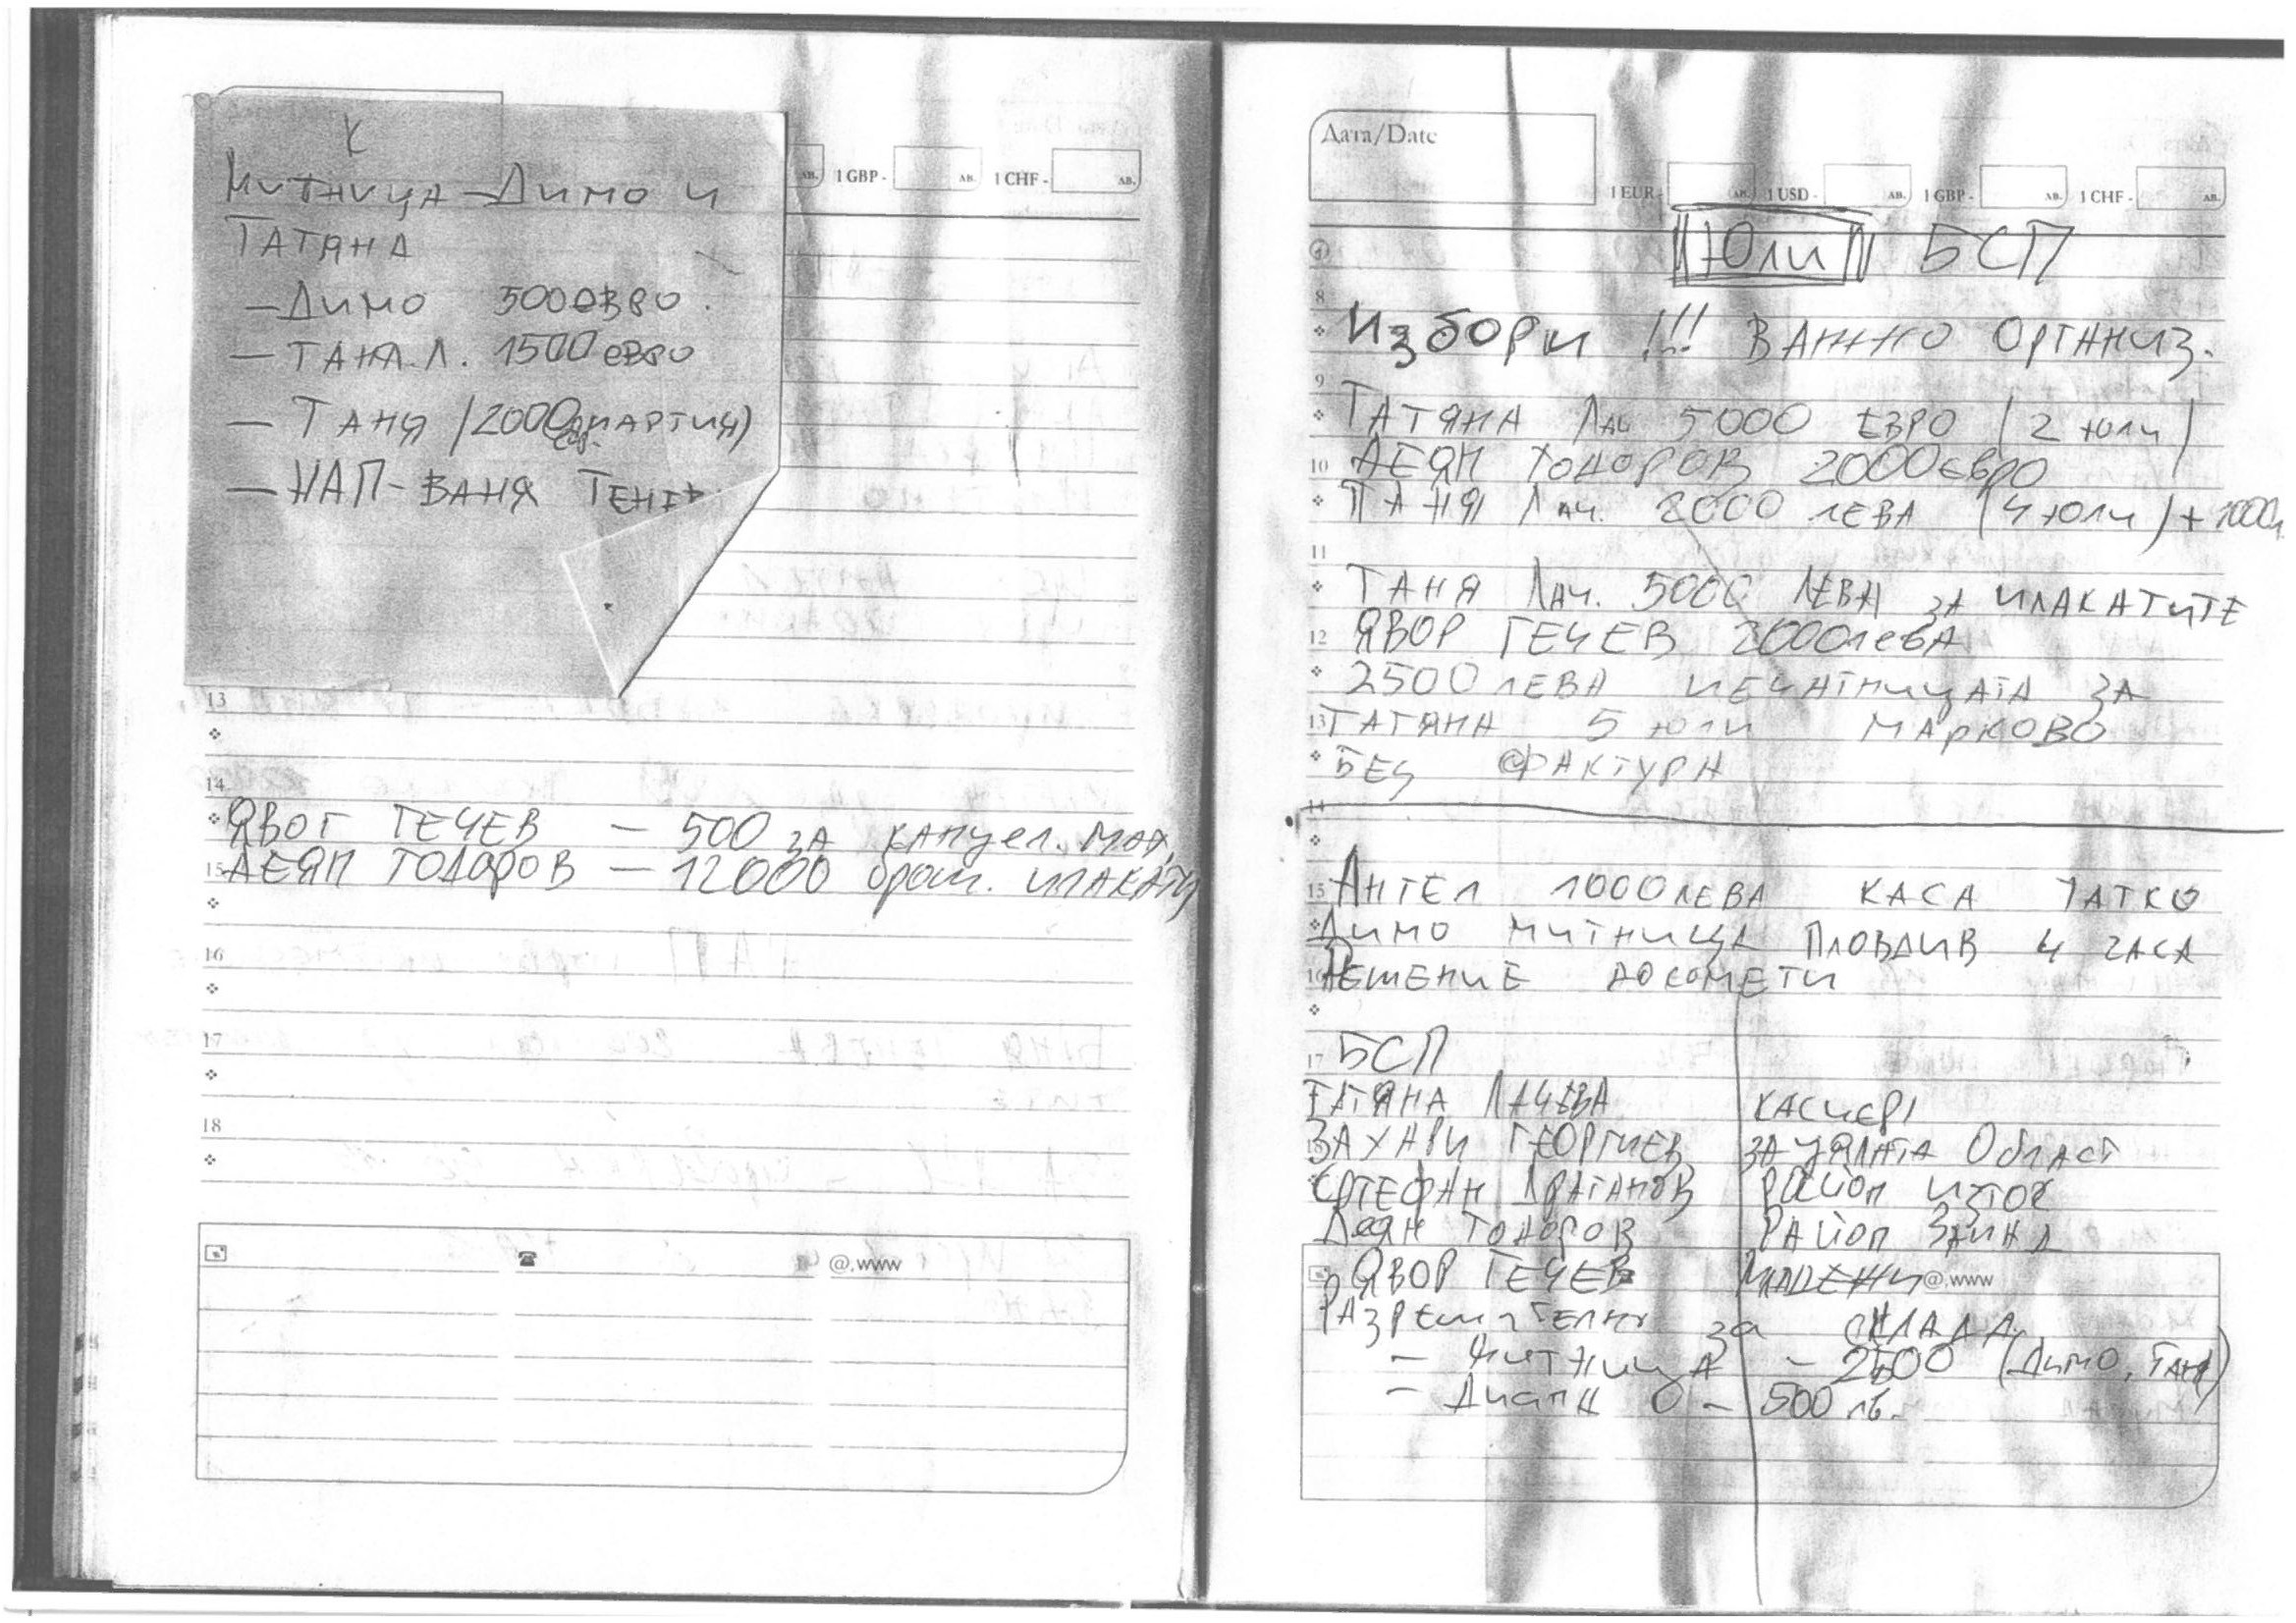 К
Митница - Димо и
Татяна
- Димо 500 евро.
- Таня.Л. 1500 евро
- Таня (2000 партия)
- НАП - Ваня
1 GBP - лв. 1 CHF - лв.
13
14
Явог Гечев - 500 за канцел. мат.
15 Деян Тодоров - 12000 брош. плакати
16
17
18
@.www
Дата/Date
1 EUR - лв. 1 USD - лв. 1 GBP - лв. 1 CHF - лв.
Юли БСП
8
Избори !!! Важно Организ.
9
Татяна Лач 5000 евро (2 юли)
10 Деян Тодоров 2000 евро
Таня Лач. 2000 лева (4 юли) + 1000
11
Таня Лач. 5000 лева за плакатите
12 Явор Гечев 2000 лева
2500 лева печатницата за
13 Татяна 5 юли Марково
Без фактура
14
15 Ангел 1000 лева каса татко
Димо митница Пловдив 4 часа
16 Решение
17 БСП
Татяна Лачева касиер
Захари Георгиев за цялата Област
Стефан Драганов район изток
Деян Тодоров район запад
Явор Гечев младежи @.www
Разрешителни за склада
- митница - 2500 (Димо, Таня)
- Диана О - 500 лв.